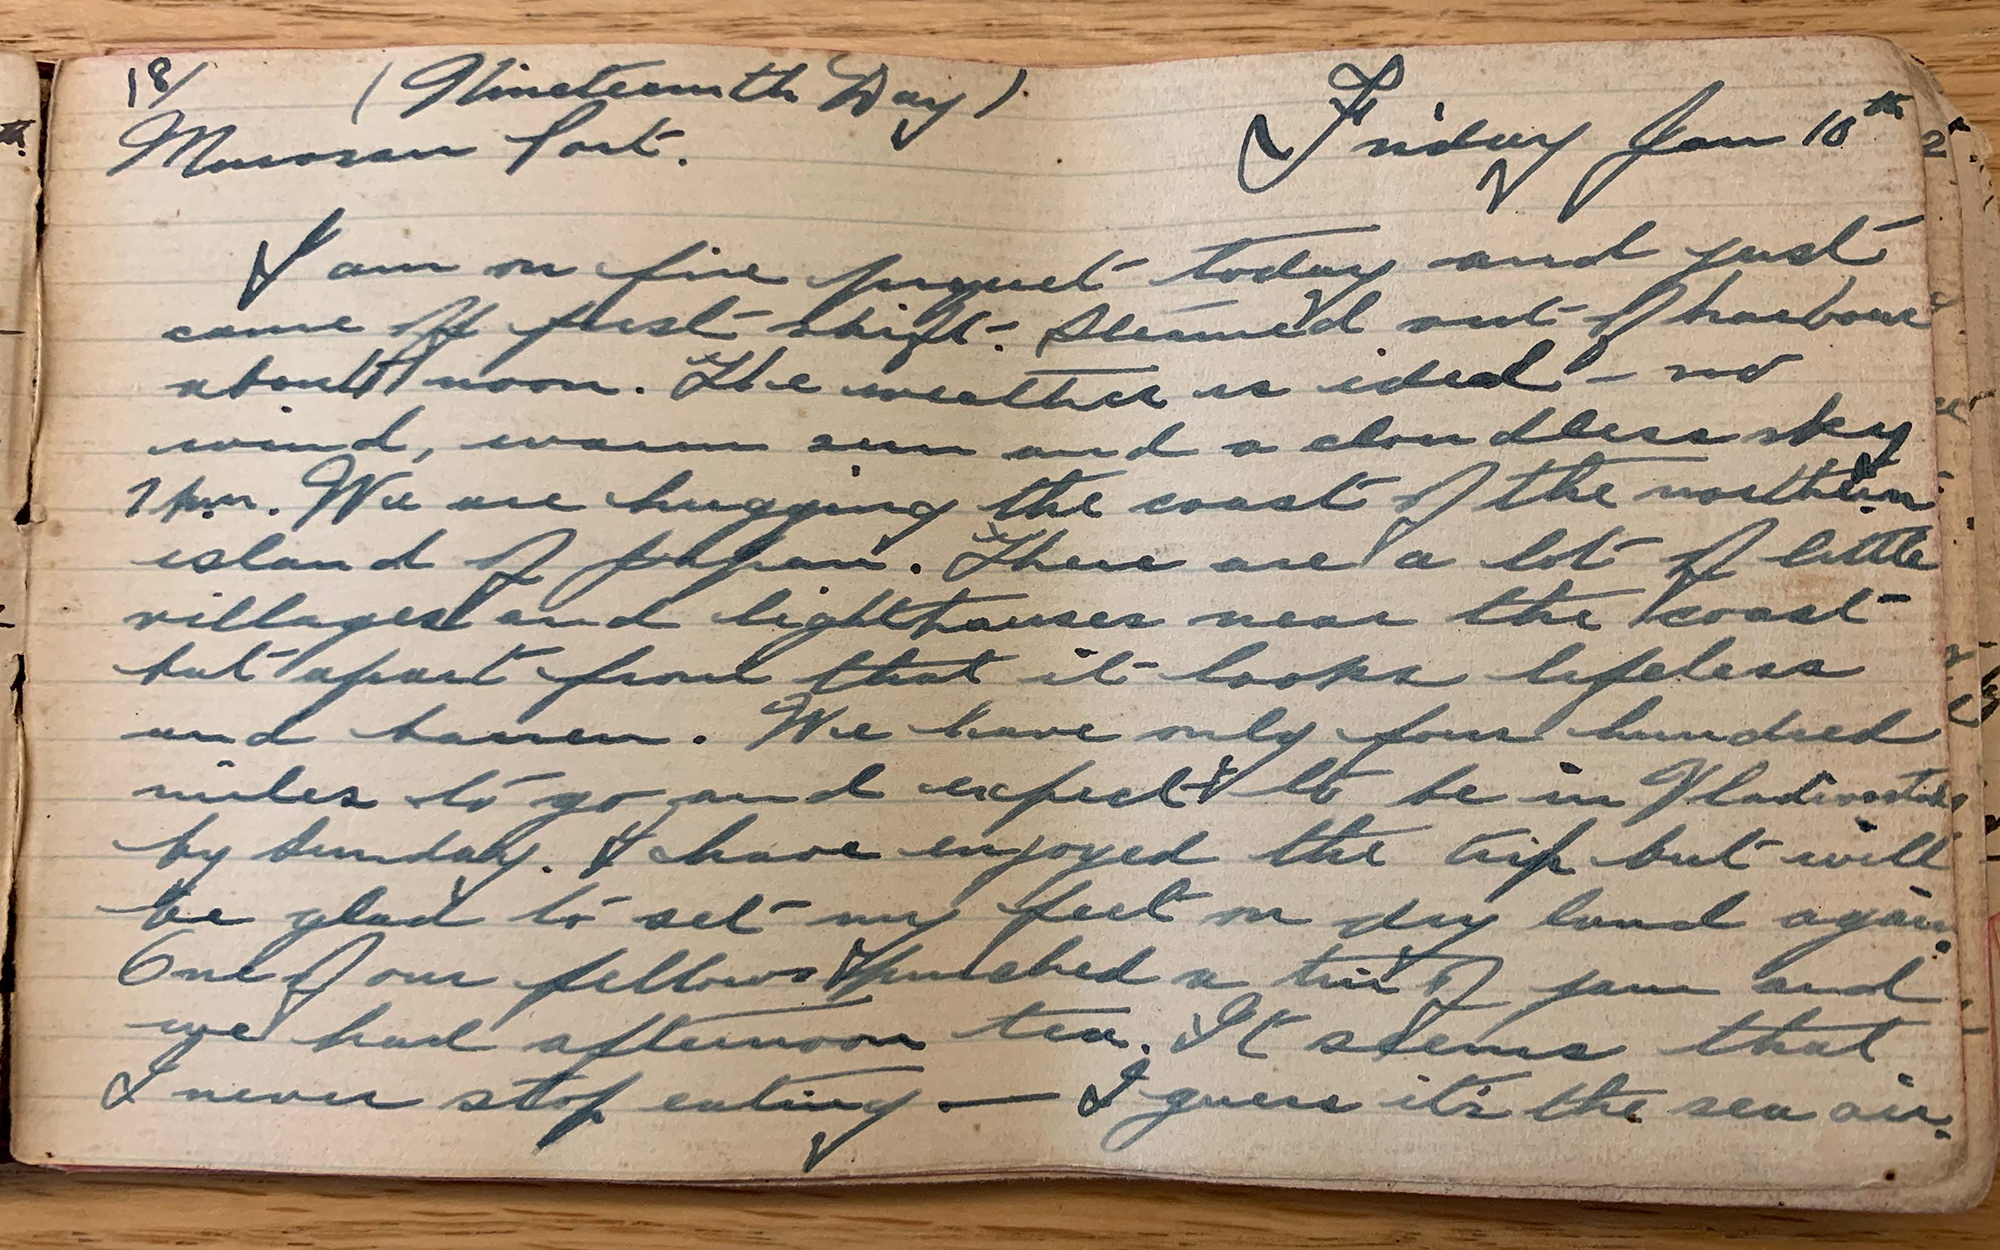 18/ (Nineteenth Day). Friday Jan 10th
Muroran Port.
I am on fire piquet today and just
came off first shift. Steamed out of harbour
about noon. The weather is ideal – no
wind, warm sun and a cloudless sky
7 p.m. We are hugging the coast of the northern
island of Japan. There are a lot of little
villages and lighthouses near the coast
but apart from that it looks lifeless
and barren. We have only four hundred
miles to go and expect to be in Vladivostok
by Sunday. I have enjoyed the trip but will
be glad to set my feet on dry land again.
One of our fellows pinched a tin of jam and
we had afternoon tea. It seems that
I never stop eating — I guess it's the sea air.